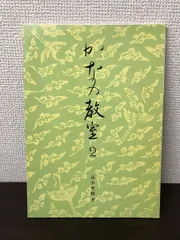 かなの教室
2